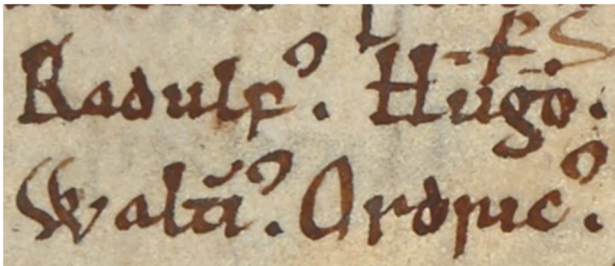 Radulfꝰ. Hugo.
Waltiꝰ. Ordricꝰ.